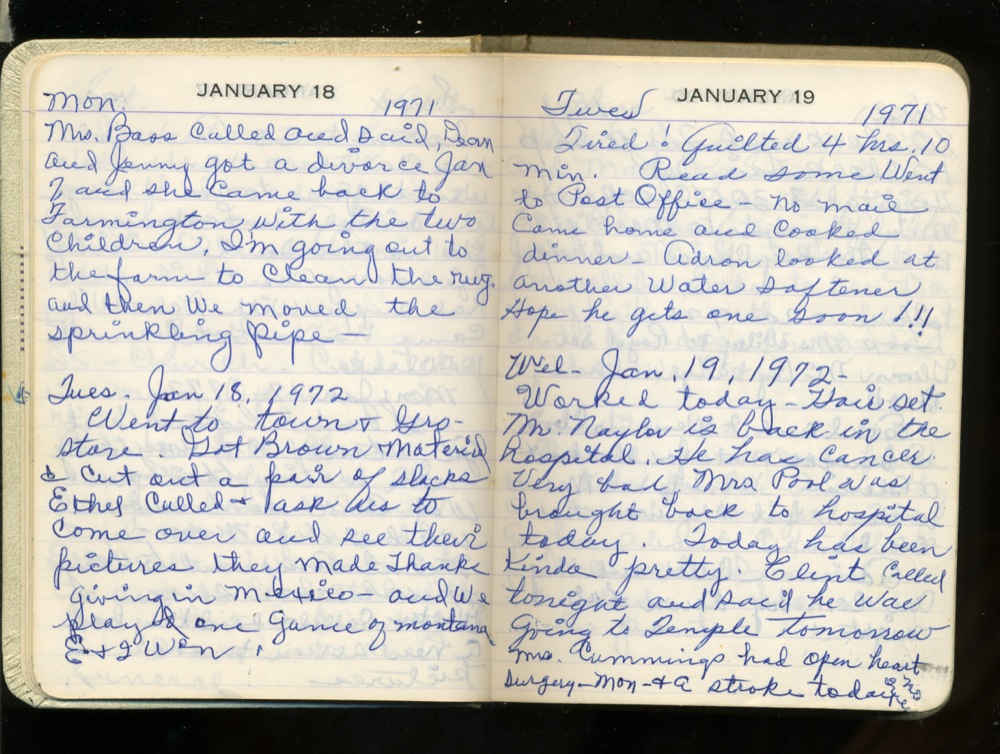 JANUARY 18
Mon. 1971
Mrs. Bass Called and said, Dean
and Jenny got a divorce Jan
7 and she came back to
Farmington with the two
Children, I'm going out to
the farm to Clean the rug.
and then We moved the
sprinkling pipe —
Tues. Jan 18, 1972
Went to town & Gro-
store Got Brown Material
& Cut out a pair of slacks
Ethel Called & ask us to
Come over and see their
pictures they made Thanks
giving in Mexico - and We
played one Game of montana
E & I Win.
JANUARY 19
Tues 1971
Tired! Quilted 4 hrs. 10
min. Read some Went
to Post Office - no mail
Came home and Cooked
dinner Adron looked at
another Water Softener
Hope he gets one soon!!!
Wed- Jan. 19, 1972-
Worked today - Hair set
Mr. Naylor is back in the
hospital. He has Cancer
Very bad Mrs Pool was
brought back to hospital
today. Today has been
Kinda pretty. Clint Called
tonight and said he was
Going to Temple tomorrow
Mrs. Cummings had open heart
Surgery - Mon - & a stroke today